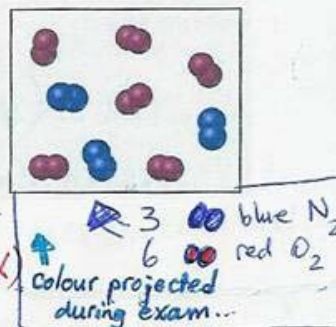 3 blue N2
6 red O2
Colour projected
during exam...